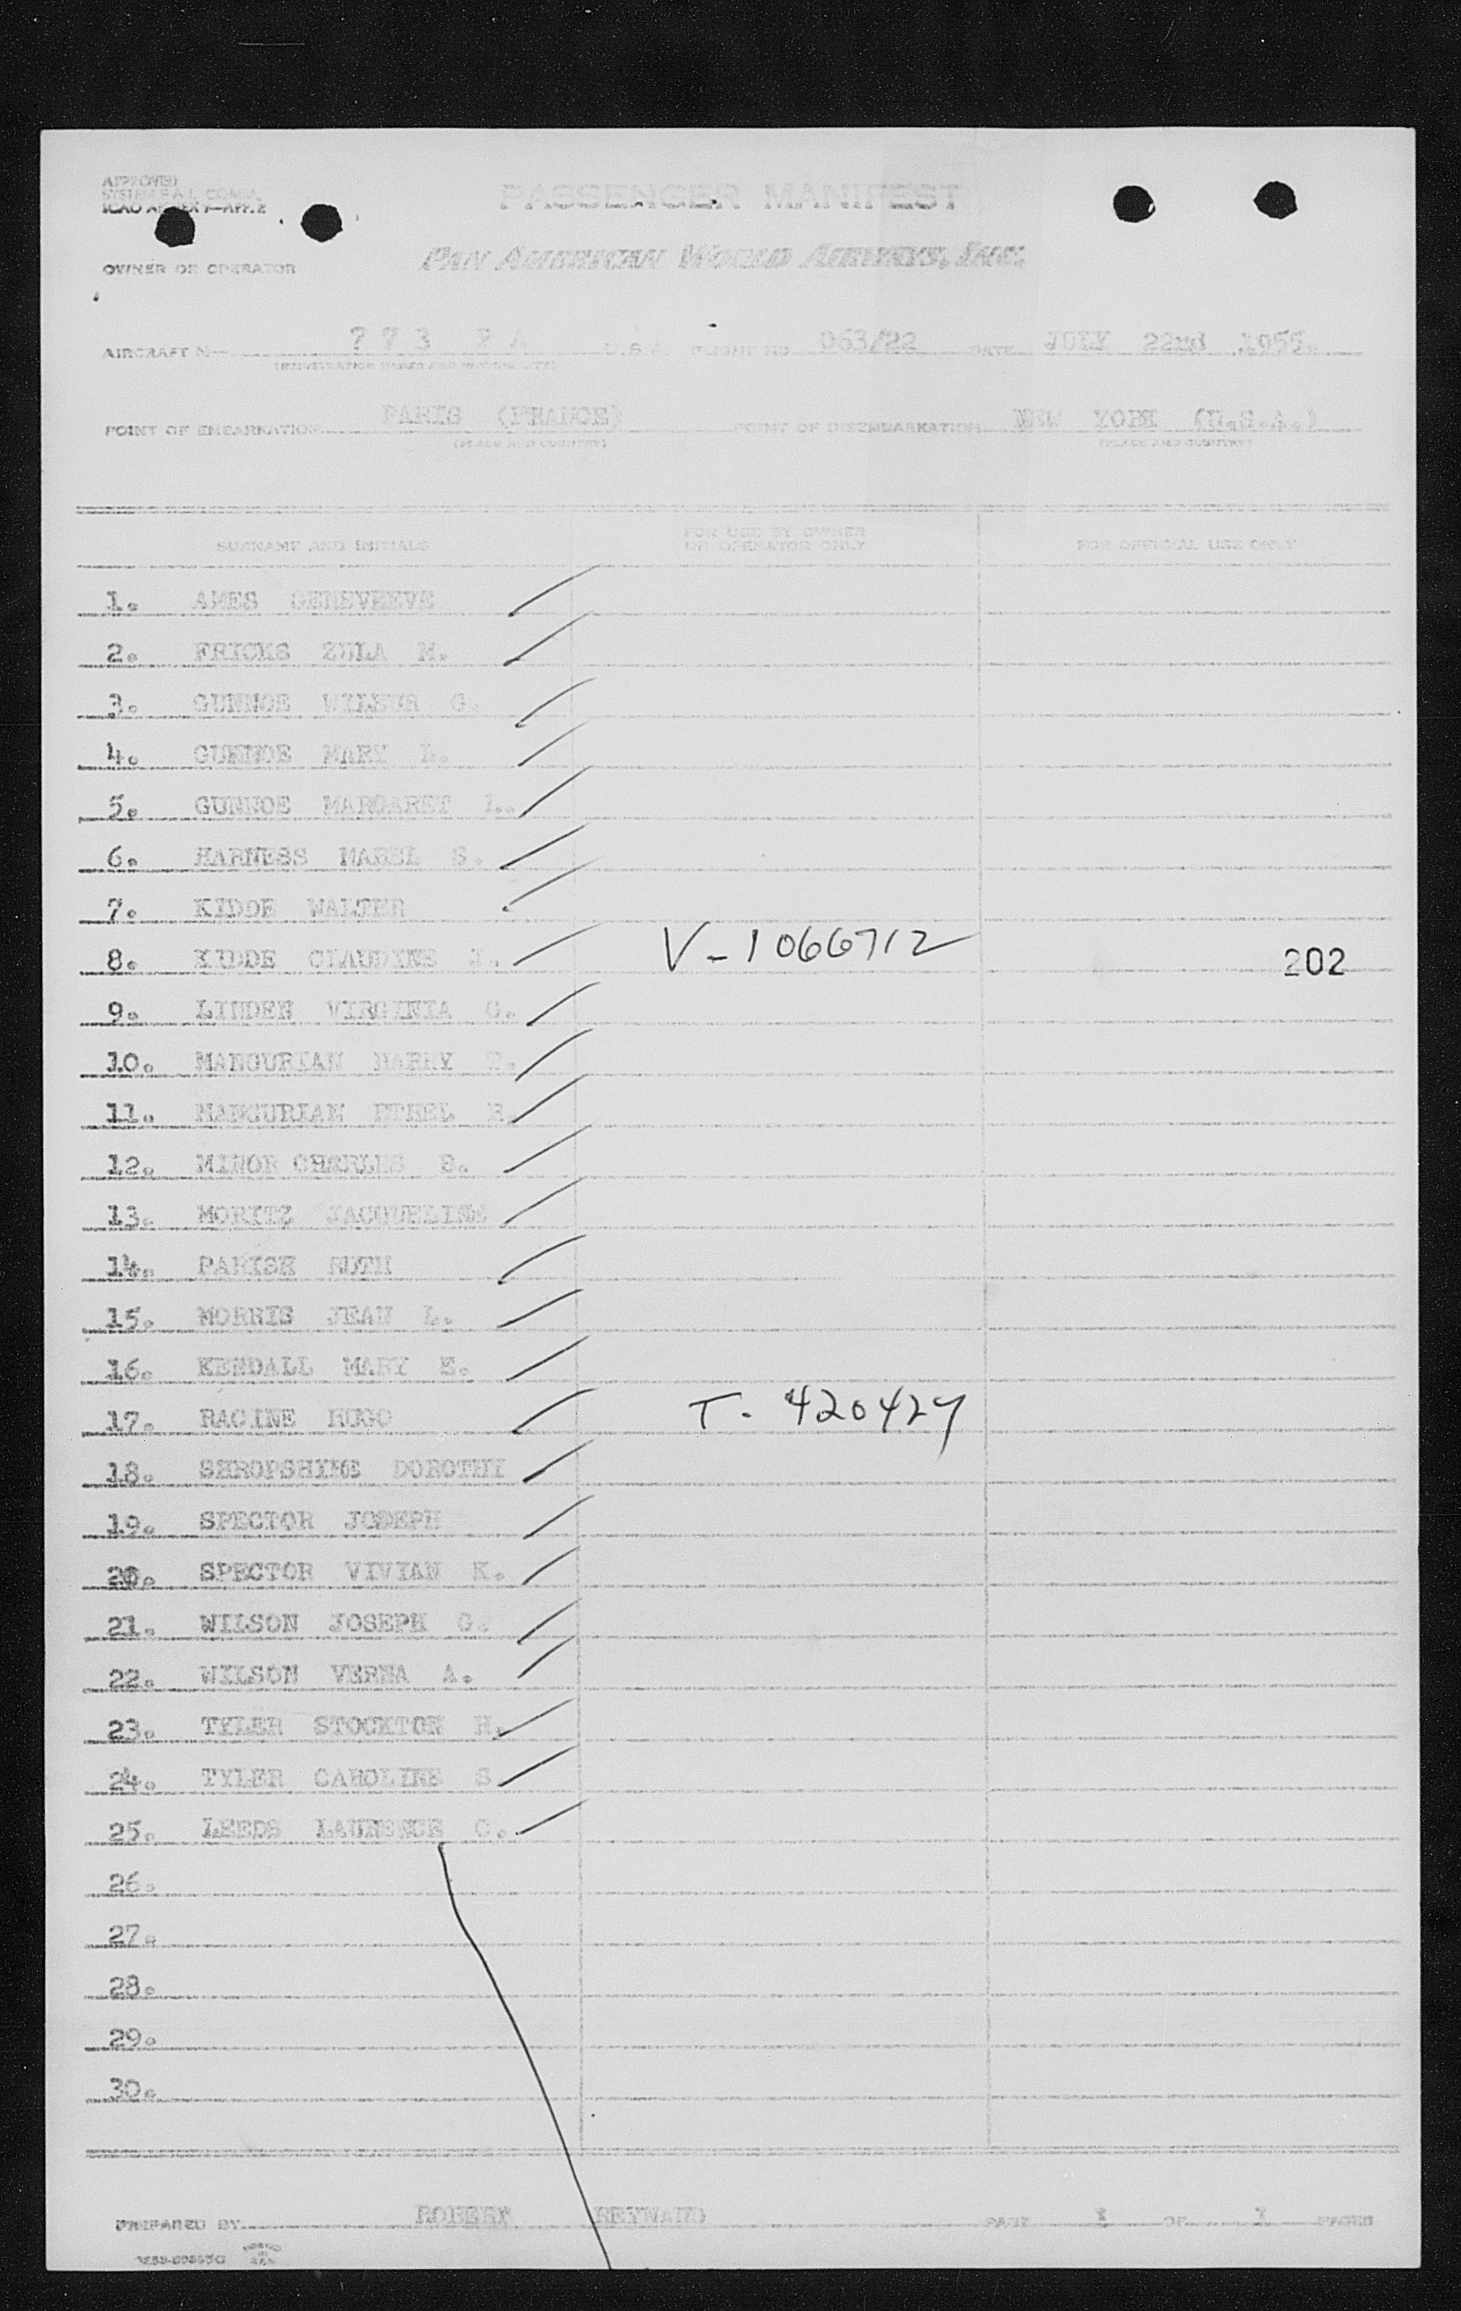 APPROVED
ICAO ANNEX 9—APP. 2
PASSENGER MANIFEST
OWNER OR OPERATOR
PAN AMERICAN WORLD AIRWAYS, INC.
AIRCRAFT N 773 PA U.S.A. FLIGHT NO 063/22 DATE JULY 22nd 1955.
POINT OF EMBARKATION PARIS (FRANCE) POINT OF DISEMBARKATION NEW YORK (U.S.A.)
(PLACE AND COUNTRY) (PLACE AND COUNTRY)
SURNAME AND INITIALS FOR USE BY OWNER OR OPERATOR ONLY FOR OFFICIAL USE ONLY
1. AMES GENEVIEVE
2. FRICKS ZULA M.
3. GUNNOE WILBUR G.
4. GUNNOE MARY L.
5. GUNNOE MARGARET L.
6. HARNESS MABEL S.
7. KIDDE WALTER
8. KIDDE CLAUDINE V-1066712 202
9. LINDEN VIRGINIA G.
10. MANGURIAN HARRY
11. MANGURIAN ETHEL
12. MINOR CHARLES S.
13. MORITZ JACQUELINE
14. PARISH RUTH
15. MORRIS JEAN L.
16. KENDALL MARY E.
17. RACINE HUGO T. 420427
18. SHROPSHIRE DOROTHY
19. SPECTOR JOSEPH
20. SPECTOR VIVIAN K.
21. WILSON JOSEPH G.
22. WILSON VERNA A.
23. TYLER STOCKTON H.
24. TYLER CAROLINE S
25. LEEDS LAURENCE C.
26.
27.
28.
29.
30.
PREPARED BY ROBERT REYNAUD PAGE 1 OF 1 PAGES